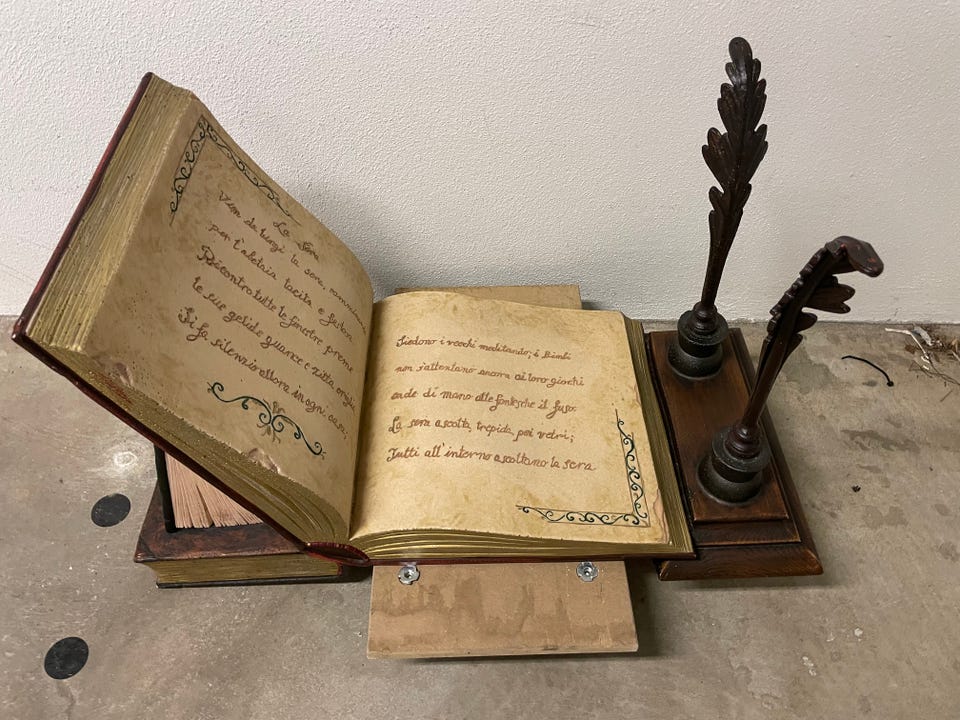 La Sera
Vien da lungi la sera, camminando
per l'abetaia tacita e festosa
Riscontro tutte le finestre preme
le sue gelide guance e zitta origlia
Si fa silenzio allora in ogni casa;
Siedono i vecchi meditando; i bimbi
non s'attentano ancora ai loro giochi
cade di mano alle fantesche il fuso.
La sera ascolta, trepida, poi vetri;
Tutti all'interno ascoltano la sera